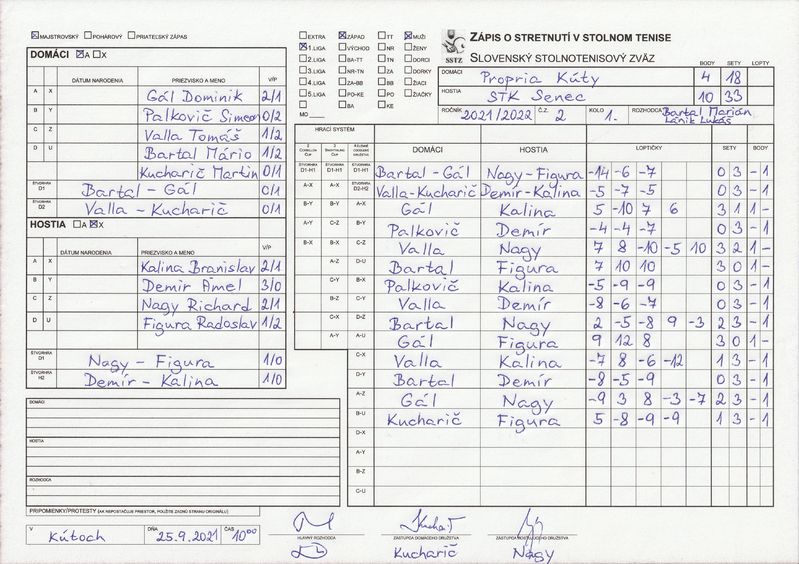 MAJSTROVSKÝ POHÁROVÝ PRIATEĽSKÝ ZÁPAS
DOMÁCI A X
DÁTUM NARODENIA PRIEZVISKO A MENO V/P
A X Gál Dominik 2/1
B Y Palkovič Simeon 0/2
C Z Valla Tomáš 1/2
D U Bartal Mário 1/2
Kucharič Martin 0/1
ŠTVORHRA D1 Bartal - Gál 0/1
ŠTVORHRA D2 Valla - Kucharič 0/1
HOSTIA A X
DÁTUM NARODENIA PRIEZVISKO A MENO V/P
A X Kalina Branislav 2/1
B Y Demir Amel 3/0
C Z Nagy Richard 2/1
D U Figura Radoslav 1/2
ŠTVORHRA D1 Nagy - Figura 1/0
ŠTVORHRA H2 Demír - Kalina 1/0
DOMÁCI
HOSTIA
ROZHODCA
PRIPOMIENKY/PROTESTY (AK NEPOSTAČUJE PRIESTOR, POUŽITE ZADNÚ STRANU ORIGINÁLU)
V Kútoch DŇA 25.9.2021 ČAS 10⁰⁰
EXTRA ZÁPAD TT MUŽI
1.LIGA VÝCHOD NR ŽENY
2.LIGA BA-TT TN DORCI
3.LIGA NR-TN ZA DORKY
4.LIGA ZA-BB BB ŽIACI
5.LIGA PO-KE PO ŽIAČKY
BA KE
MO
SSTZ
ZÁPIS O STRETNUTÍ V STOLNOM TENISE
SLOVENSKÝ STOLNOTENISOVÝ ZVÄZ
BODY SETY LOPTY
DOMÁCI Propria Kúty 4 18
HOSTIA STK Senec 10 33
ROČNÍK 2021/2022 Č.Z. 2 KOLO 1. ROZHODCA Bartal Marián
Lánik Lukáš
HRACÍ SYSTÉM
DOMÁCI HOSTIA LOPTIČKY SETY BODY
ŠTVORHRA D1-H1 ŠTVORHRA D1-H1 Bartal - Gál Nagy - Figura -14 -6 -7 0 3 - 1
A-X A-X ŠTVORHRA D2-H2 Valla - Kucharič Demír - Kalina -5 -7 -5 0 3 - 1
B-Y B-Y A-X Gál Kalina 5 -10 7 6 3 1 1 -
A-Y C-Z B-Y Palkovič Demír -4 -4 -7 0 3 - 1
B-X B-X C-Z Valla Nagy 7 8 -10 -5 10 3 2 1 -
A-Z D-U Bartal Figura 7 10 10 3 0 1 -
C-Y B-X Palkovič Kalina -5 -9 -9 0 3 - 1
B-Z C-Y Valla Demír -8 -6 -7 0 3 - 1
C-X D-Z Bartal Nagy 2 -5 -8 9 -3 2 3 - 1
A-Y A-U Gál Figura 9 12 8 3 0 1 -
C-X Valla Kalina -7 8 -6 -12 1 3 - 1
D-Y Bartal Demír -8 -5 -9 0 3 - 1
A-Z Gál Nagy -9 3 8 -3 -7 2 3 - 1
B-U Kucharič Figura 5 -8 -9 -9 1 3 - 1
D-X
A-Y
B-Z
C-U
HLAVNÝ ROZHODCA ZÁSTUPCA DOMÁCEHO DRUŽSTVA ZÁSTUPCA HOSŤUJÚCEHO DRUŽSTVA
Kucharič Nagy